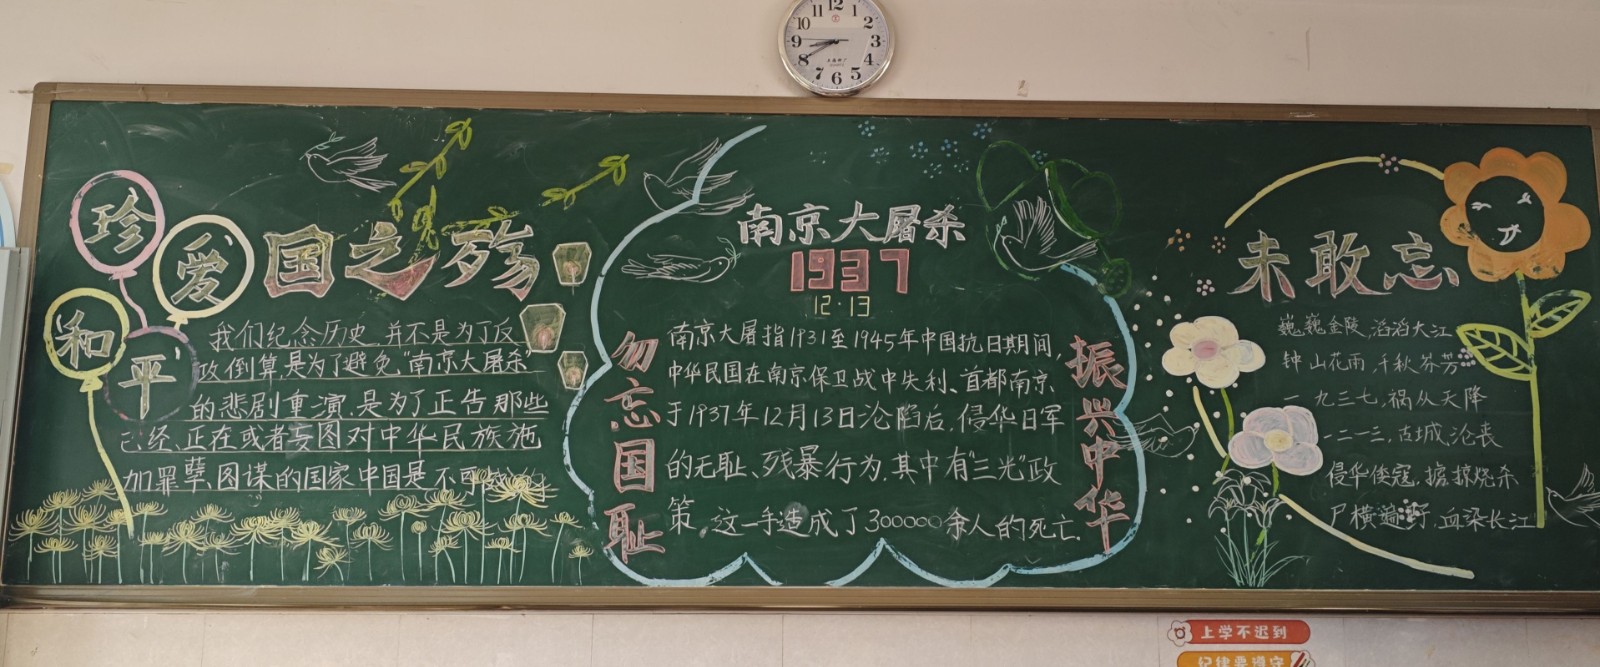 12
11
1
10
2
9
3
8
4
7
5
6
珍爱
和平
国之殇
我们纪念历史,并不是为了反
攻倒算,是为了避免“南京大屠杀”
的悲剧重演.是为了正告那些
已经、正在或者妄图对中华民族施
加罪孽、图谋的国家中国是不可
南京大屠杀
1937
12·13
勿忘国耻
南京大屠指1931至1945年中国抗日期间,
中华民国在南京保卫战中失利、首都南京
于1937年12月13日沦陷后,侵华日军
的无耻、残暴行为,其中有“三光”政
策,这一手造成了300000余人的死亡.
振兴中华
未敢忘
巍巍金陵,滔滔大江
钟山花雨,千秋芬芳
一九三七,祸从天降
一二一三,古城沦丧
侵华倭寇,掳掠烧杀
尸横遍野,血染长江
上学不迟到
纪律要遵守